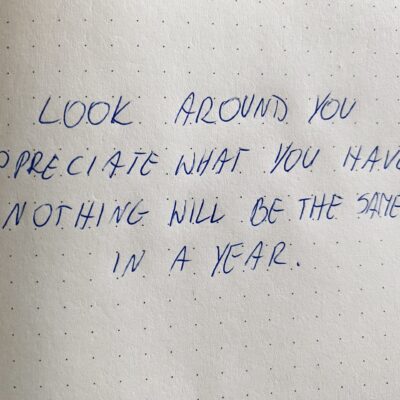 LOOK AROUND YOU
PPRECIATE WHAT YOU HAVE
NOTHING WILL BE THE SAME
IN A YEAR.